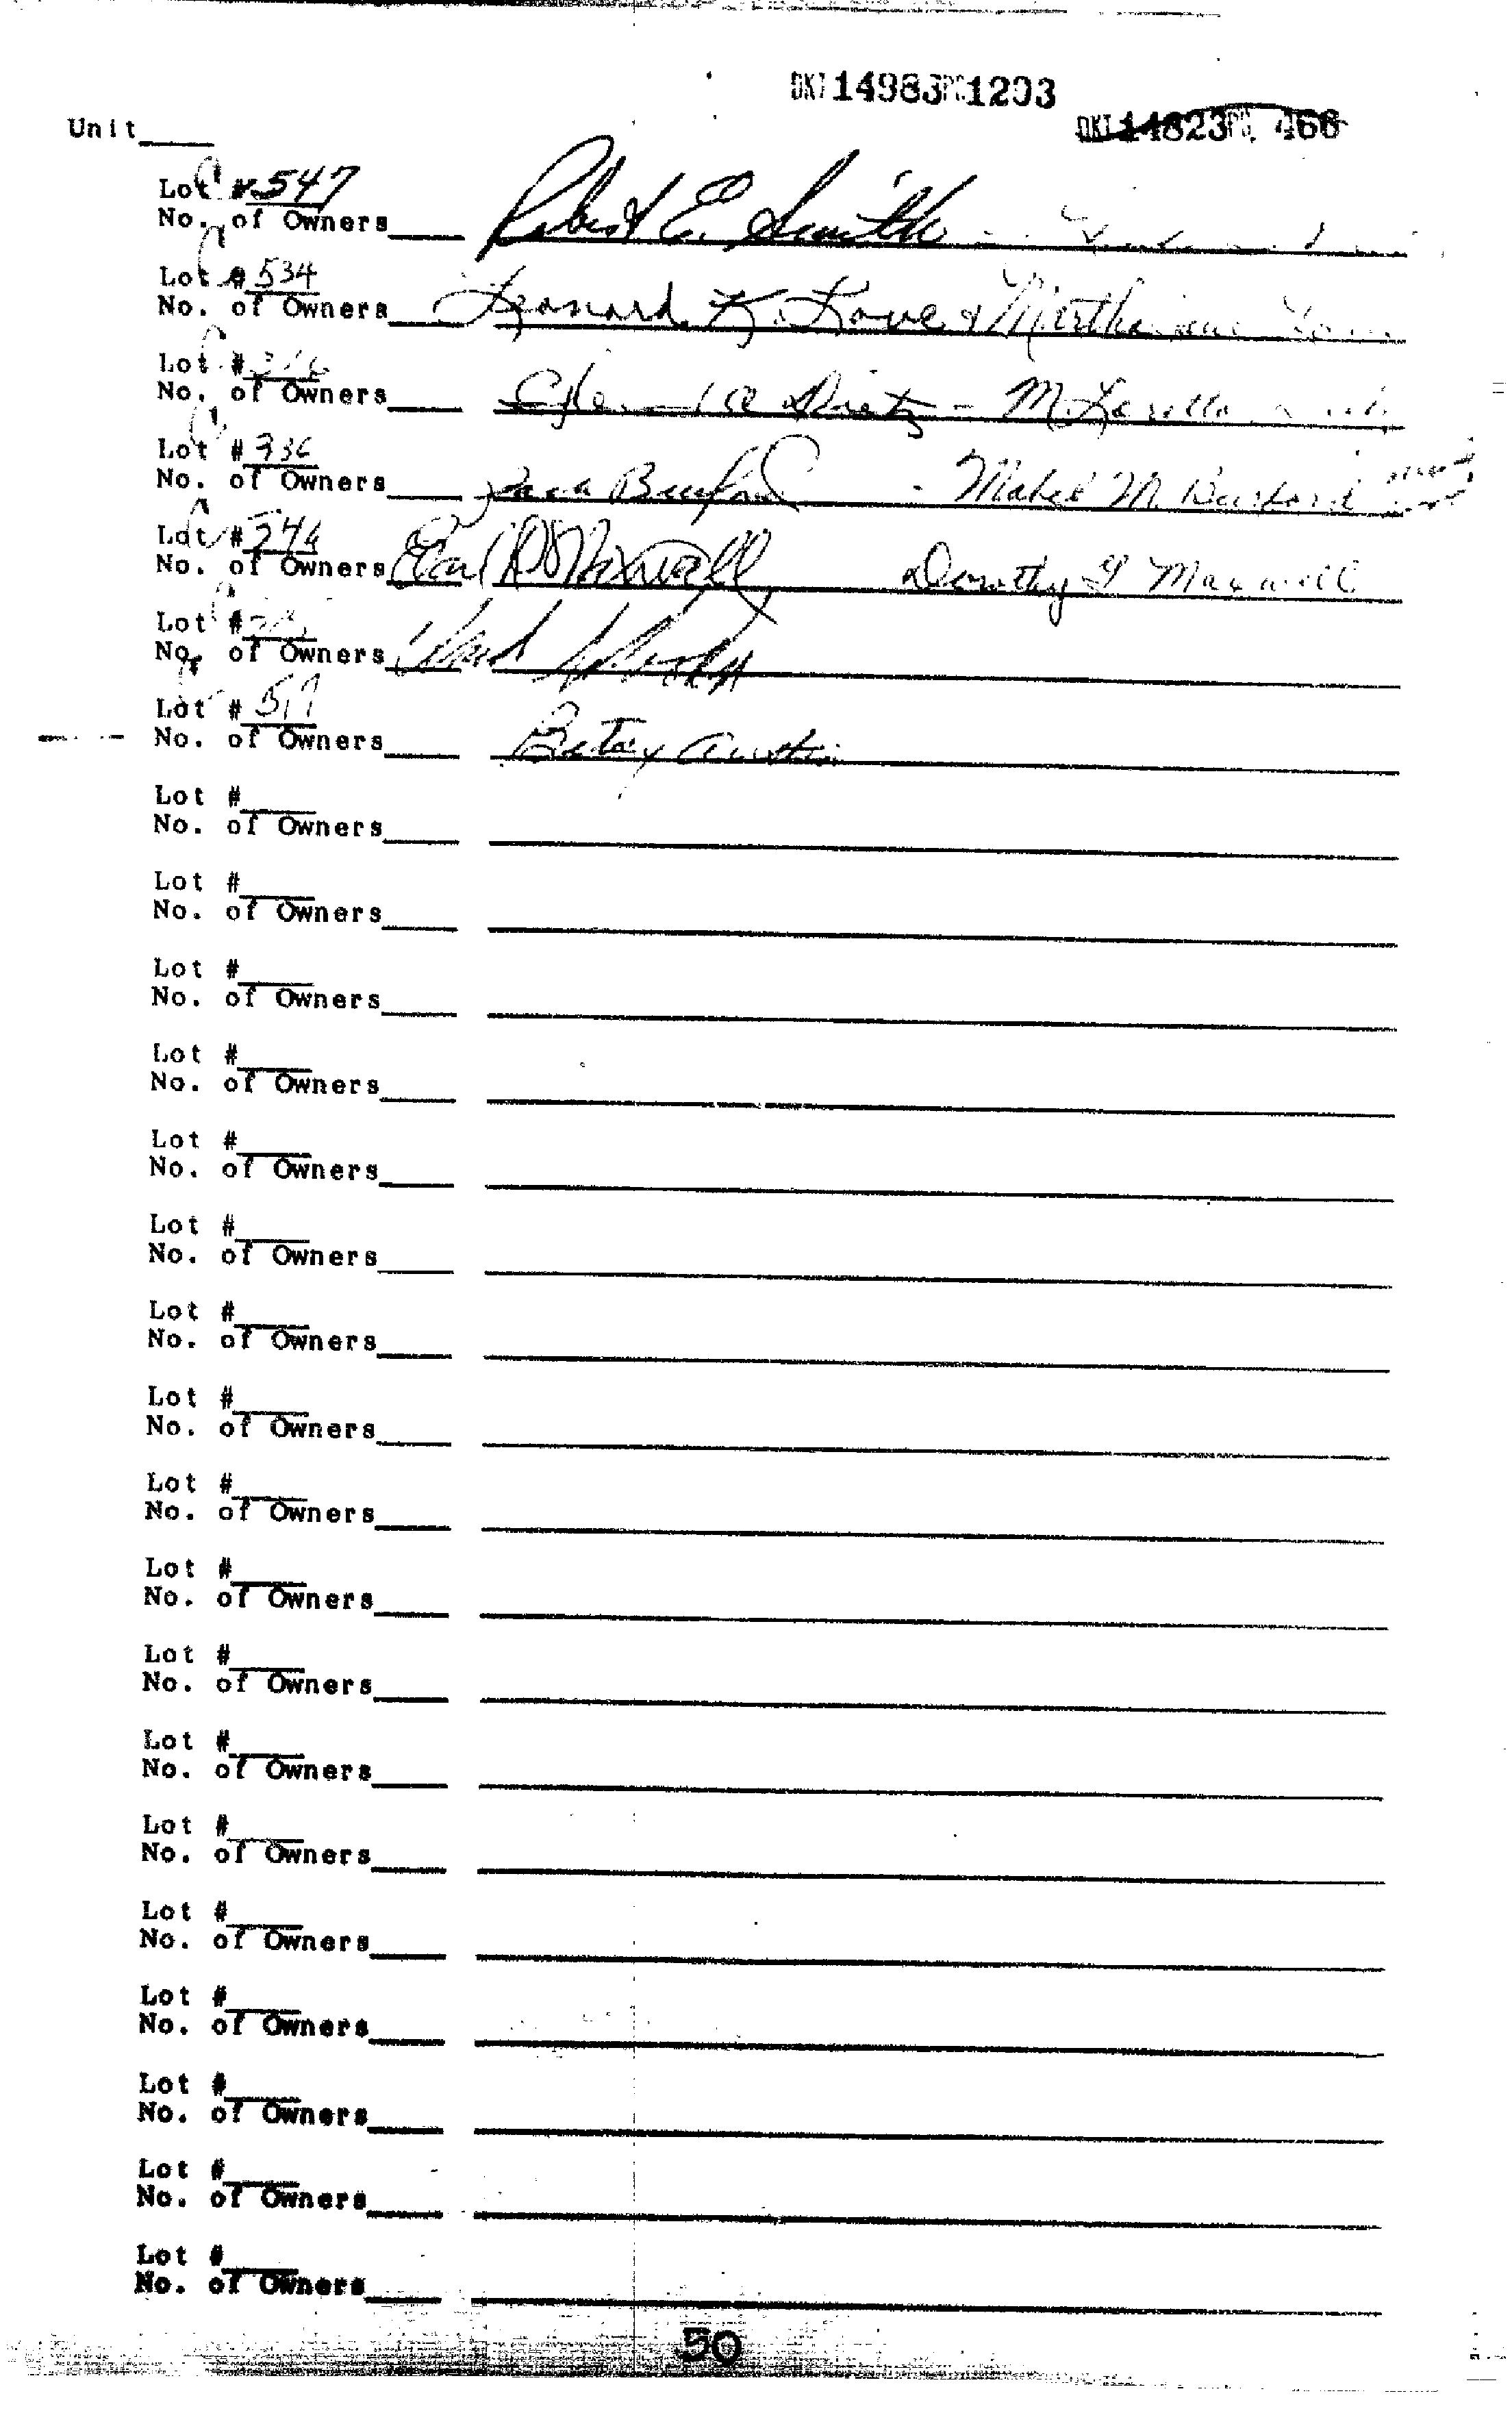 DKT 14983 PG 1203
DKT 14823 PG. 466
Unit
Lot # 547
No. of Owners Robert E. Smith
Lot # 534
No. of Owners Leonard K. Love & Martha Love
Lot #
No. of Owners Dietz - M.
Lot # 336
No. of Owners Burford - Mabel M. Burford
Lot # 244
No. of Owners Earl D Maxwell Dorothy G Maxwell
Lot #
No. of Owners
Lot # 517
No. of Owners Betsy Austin
Lot #
No. of Owners
Lot #
No. of Owners
Lot #
No. of Owners
Lot #
No. of Owners
Lot #
No. of Owners
Lot #
No. of Owners
Lot #
No. of Owners
Lot #
No. of Owners
Lot #
No. of Owners
Lot #
No. of Owners
Lot #
No. of Owners
Lot #
No. of Owners
Lot #
No. of Owners
Lot #
No. of Owners
Lot #
No. of Owners
Lot #
No. of Owners
Lot #
No. of Owners
Lot #
No. of Owners
50